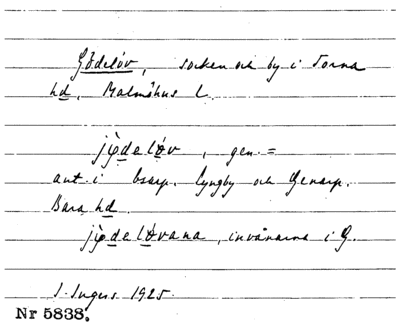 Gödelöv, socken och by i Torna
hd, Malmöhus L.
jø̀delǿv, gen =
ant. i Esarp. Lyngby och Genarp.
Bara hd.
jø̀delǿvana, invånarna i G.
I. Ingers 1925.
Nr 5838.